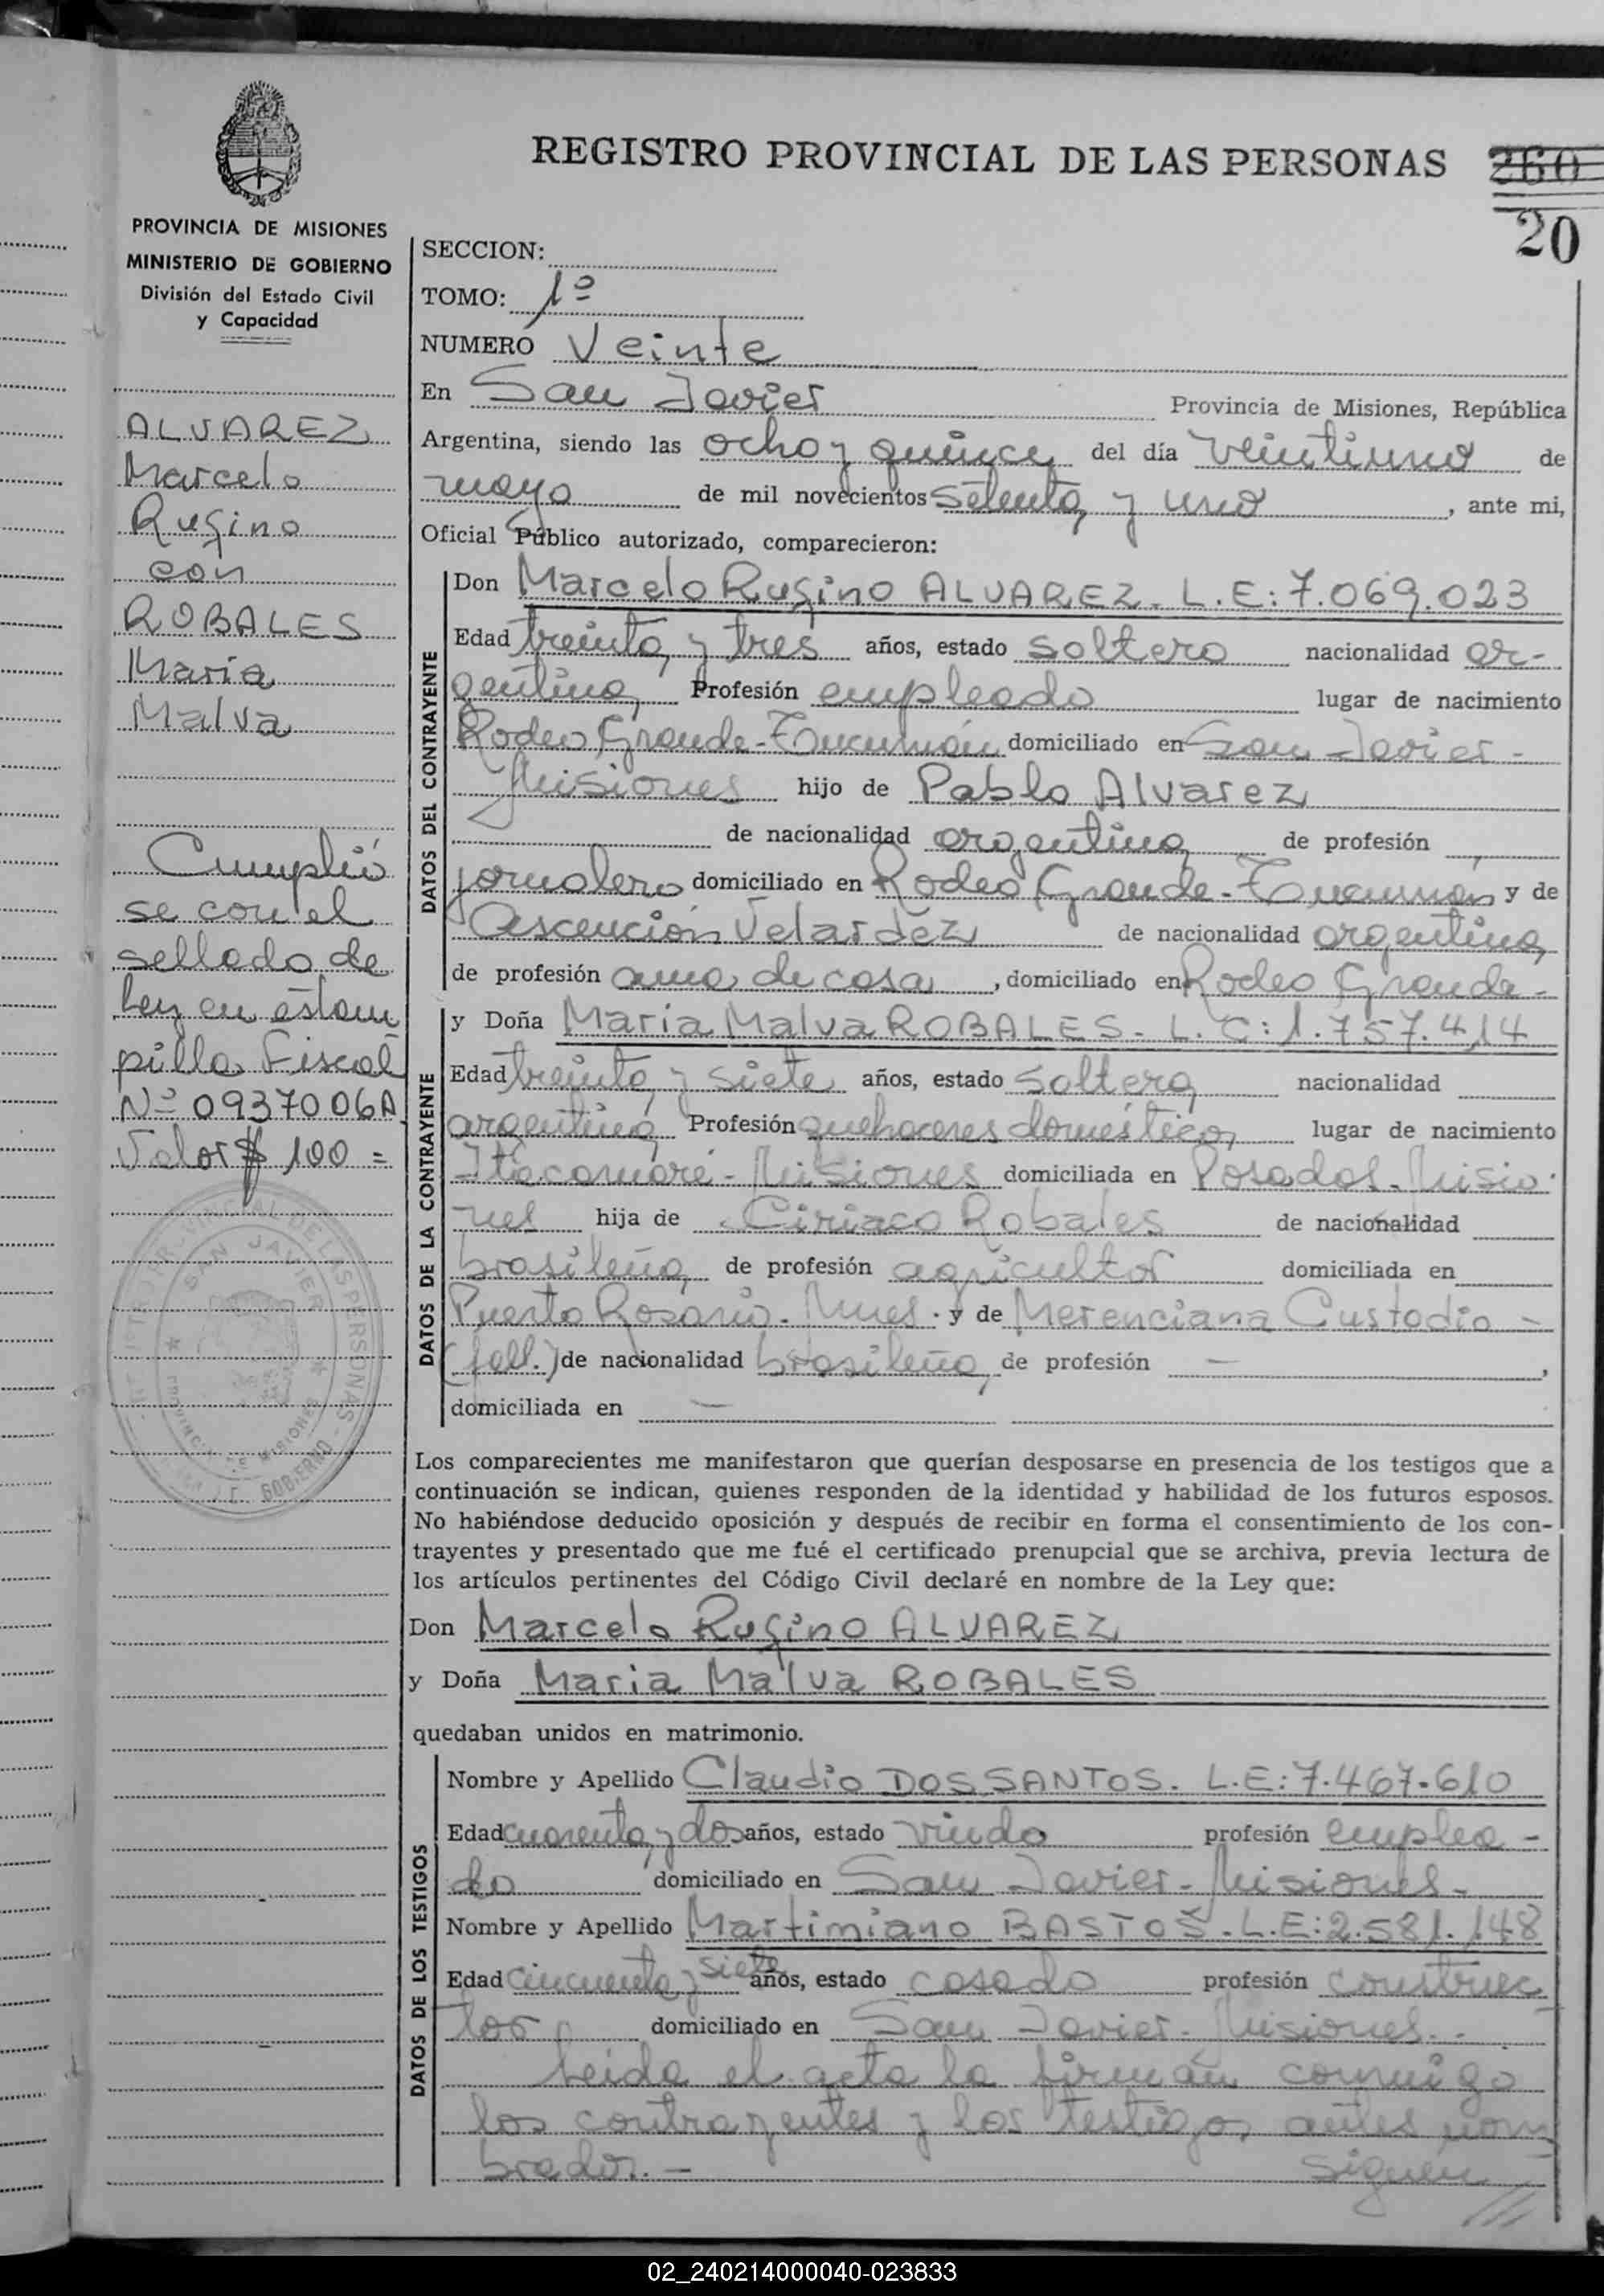 REGISTRO PROVINCIAL DE LAS PERSONAS
260
20
PROVINCIA DE MISIONES
MINISTERIO DE GOBIERNO
División del Estado Civil
y Capacidad
ALVAREZ
Marcelo
Rufino
con
ROBALES
Maria
Malva
Cumplió
se con el
sellado de
Ley en estam
pilla Fiscal
Nº 0937006A
Valor $ 100 =
SAN JAVIER
SECCION:
TOMO: 1º
NUMERO Veinte
En San Javier Provincia de Misiones, República
Argentina, siendo las ocho y quince del día veintiuno de
mayo de mil novecientos setenta y uno, ante mi,
Oficial Público autorizado, comparecieron:
DATOS DEL CONTRAYENTE
Don Marcelo Rufino ALVAREZ. L.E: 7.069.023
Edad treinta y tres años, estado soltero nacionalidad ar-
gentina Profesión empleado lugar de nacimiento
Rodeo Grande-Tucumán domiciliado en San Javier -
Misiones hijo de Pablo Alvarez
de nacionalidad argentina de profesión
jornalero domiciliado en Rodeo Grande-Tucumán y de
Ascención Velardez de nacionalidad argentina
de profesión ama de casa, domiciliado en Rodeo Grande-
DATOS DE LA CONTRAYENTE
y Doña Maria Malva ROBALES. L.C: 1.757.414
Edad treinta y siete años, estado soltera nacionalidad
argentina Profesión quehaceres doméstico lugar de nacimiento
Itacaruaré-Misiones domiciliada en Posadas-Misio-
nes hija de Ciriaco Robales de nacionalidad
brasileña de profesión agricultor domiciliada en
Puerto Rosario-Mnes. y de Merenciana Custodio -
(fall.) de nacionalidad brasileña de profesión -,
domiciliada en -
Los comparecientes me manifestaron que querían desposarse en presencia de los testigos que a
continuación se indican, quienes responden de la identidad y habilidad de los futuros esposos.
No habiéndose deducido oposición y después de recibir en forma el consentimiento de los con-
trayentes y presentado que me fué el certificado prenupcial que se archiva, previa lectura de
los artículos pertinentes del Código Civil declaré en nombre de la Ley que:
Don Marcelo Rufino ALVAREZ
y Doña Maria Malva ROBALES
quedaban unidos en matrimonio.
DATOS DE LOS TESTIGOS
Nombre y Apellido Claudio DOS SANTOS. L.E: 7.467.610
Edad cuarenta y dos años, estado viudo profesión emplea-
do domiciliado en San Javier-Misiones-
Nombre y Apellido Martimiano BASTOS. L.E: 2.581.148
Edad cincuenta y siete años, estado casado profesión construc
tor domiciliado en San Javier-Misiones.-
Leida el acta la firman conmigo
los contrayentes y los testigos antes nom
brados.-
siguen ///
02_240214000040-023833